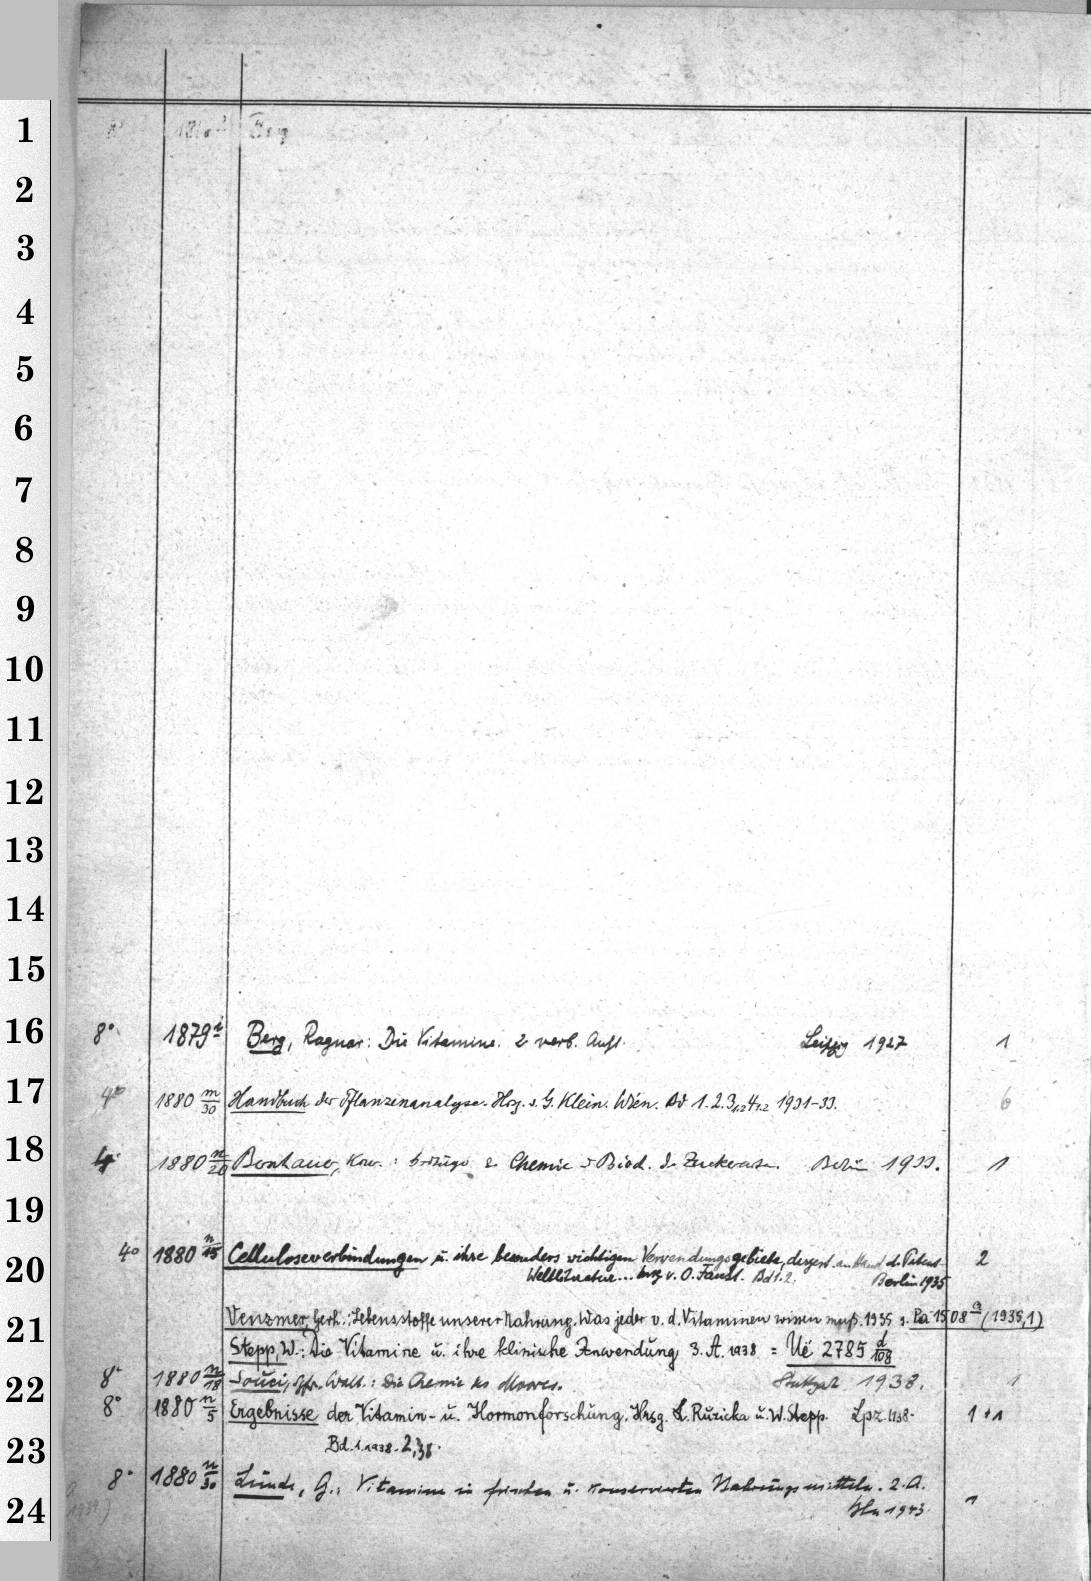 1
Berg
2
3
4
5
6
7
8
9
10
11
12
13
14
15
16
8° 1879 i Berg, Ragnar: Die Vitamine. 2 verb. Aufl. Leipzig 1927 1
17
4° 1880 m/30 Handbuch der Pflanzenanalyse. Hrsg. v. G. Klein. Wien. Bd 1.2.3,1.2 4,1.2 1931-33. 6
18
4° 1880 n/20 Chemie d. 1933. 1
19
4° 1880 n/15 Celluloseverbindungen u. ihre besonders wichtigen Verwendungsgebiete, dargest. an Hand d. Patent- 2
20
Weltliteratur... hrsg v. O. Faust. Bd 1.2. Berlin 1935
21
Venzmer, Gerh.: Lebensstoffe unserer Nahrung. Was jeder v. d. Vitaminen wissen muß. 1935 s. Pa 1508 a (1935,1)
Stepp, W.: Die Vitamine u. ihre klinische Anwendung 3. A. 1938 = Ue 2785 d/108
22
8° 1880 n/18 Souci, Walt.: Die Chemie des Moores. Stuttgart 1938. 1
8° 1880 n/5 Ergebnisse der Vitamin- u. Hormonforschung. Hrsg. L. Ruzicka u. W. Stepp. Lpz 1938- 1+1
23
Bd. 1. 1938. 2,38.
8° 1880 n/30 Lunde, G.: Vitamine in frischen u. konservierten Nahrungsmitteln. 2. A.
24
Bln 1943. 1